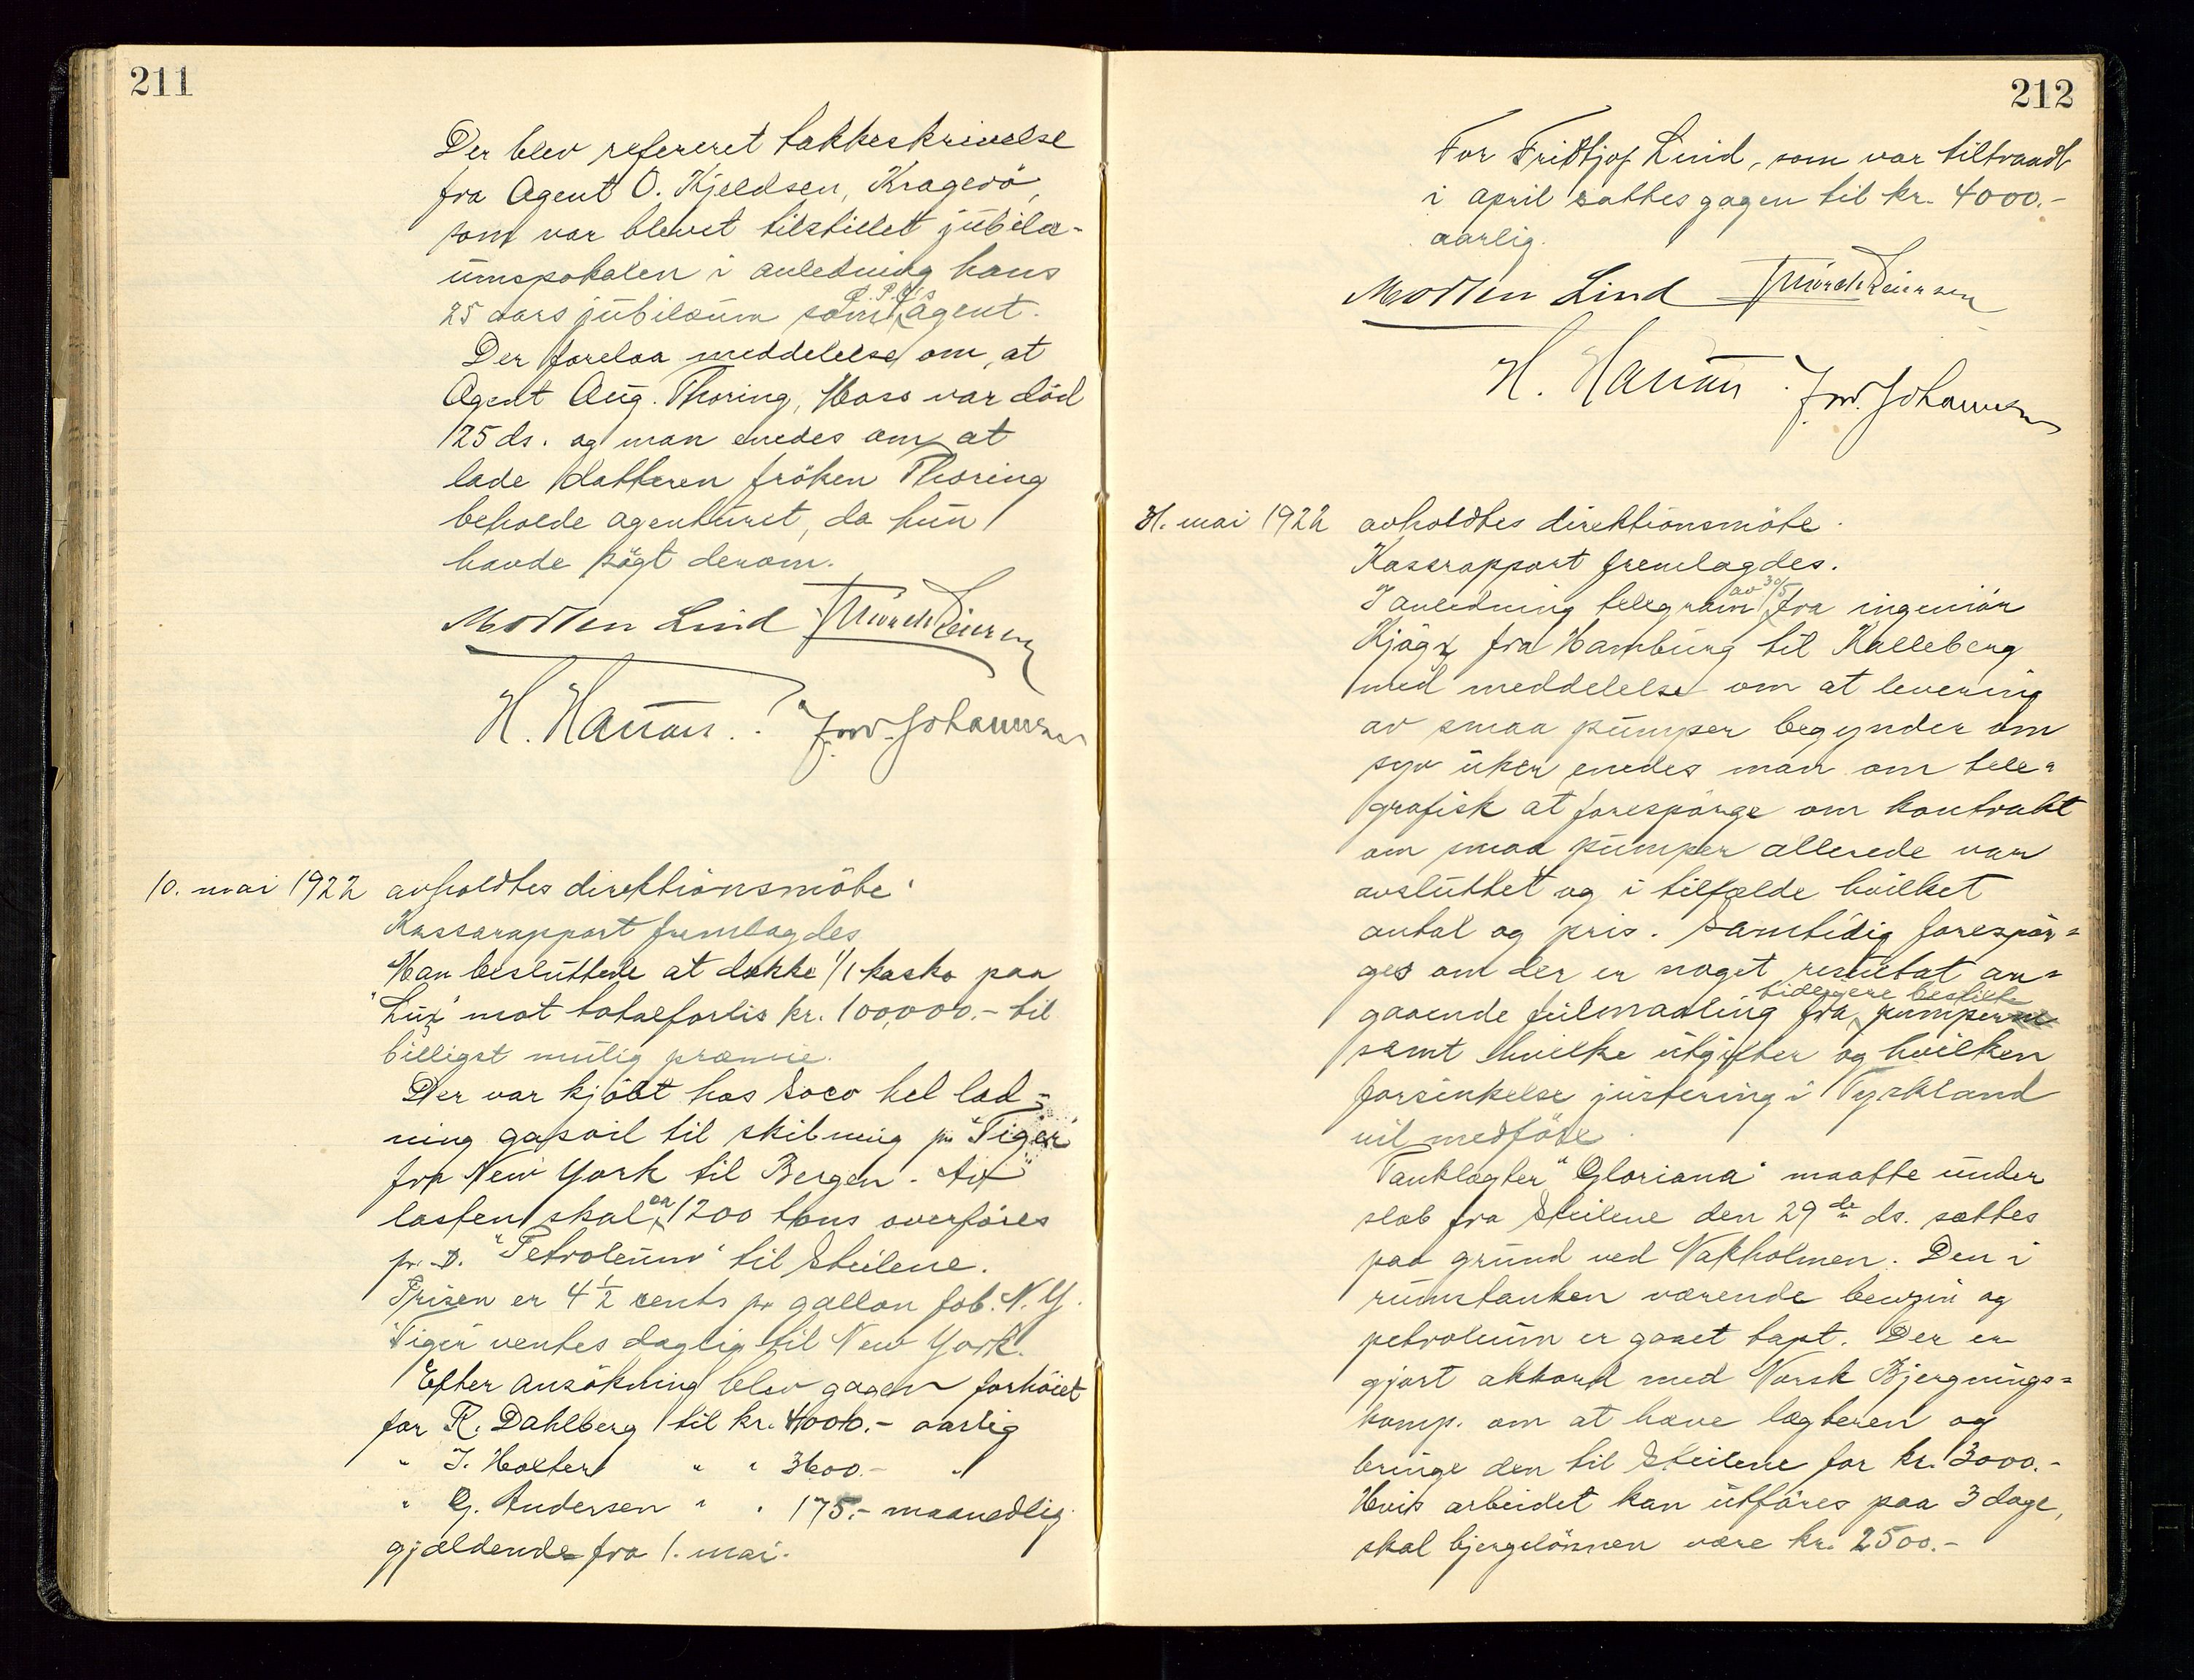 211
Der blev refereret takkeskrivelse
fra Agent O. Kjeldsen, Kragerö,
som var blevet tilstillet jubilæ-
umspokalen i anledning hans
25 aars jubilæum som Ø.P.C's agent.
Der forelaa meddelelse om, at
Agent Aug. Thoring, Moss var död
25 ds. og man enedes om, at
lade datteren fröken Thoring
beholde agenturet, da hun
havde sögt derom.
Morten Lind
H. Hansen. Fred. Johannsen
10. mai 1922 avholdtes direktionsmöte.
Kassarapport fremlagdes
Man besluttede at dække 1/1 kasko paa
"Lux" mot totalforlis kr. 100,000.- til
billigst mulig præmie.
Der var kjöbt hos Soco hel lad-
ning gasoil til skibning pr "Tiger"
fra New York til Bergen. Av
lasten skal ca 1200 tons overföres
pr. D. "Petroleum" til Steilene.
Prisen er 4 1/2 cents pr gallon fob. N.Y.
"Tiger" ventes daglig til New York.
Efter ansökning blev gagen forhöiet
for R. Dahlberg til kr. 4000.- aarlig
" J. Holter " " 3600.- "
" G. Andersen " " 175.- maanedlig
gjældende fra 1. mai.
212
For Fridtjof Lind, som var tiltraadt
i april sattes gagen til kr. 4000.-
aarlig.
Morten Lind
H. Hansen. Fred. Johannsen
31. mai 1922 avholdtes direktionsmöte.
Kassarapport fremlagdes.
I anledning telegram av 30/5 fra ingeniör
fra Hamburg til Kalleberg
med meddelelse om at levering
av smaa pumper begynder om
syv uker enedes man om tele-
grafisk at forespörge om kontrakt
om smaa pumper allerede var
avsluttet og i tilfælde hvilket
antal og pris. Samtidig forespör-
ges om der er noget resultat an-
gaaende feilmaaling fra tidligere bestilte pumper
samt hvilke utgifter og hvilken
forsinkelse justering i Tyskland
vil medföre.
Tanklægter "Gloriana" maatte under
slæb fra Steilene den 29de ds. sættes
paa grund ved Nakholmen. Den i
rumstanken værende benzin og
petroleum er gaaet tapt. Der er
gjort akkord med Norsk Bjergnings-
komp. om at hæve lægteren og
bringe den til Steilene for kr. 3000.-
Hvis arbeidet kan utföres paa 3 dage,
skal bjergelönnen være kr. 2500.-